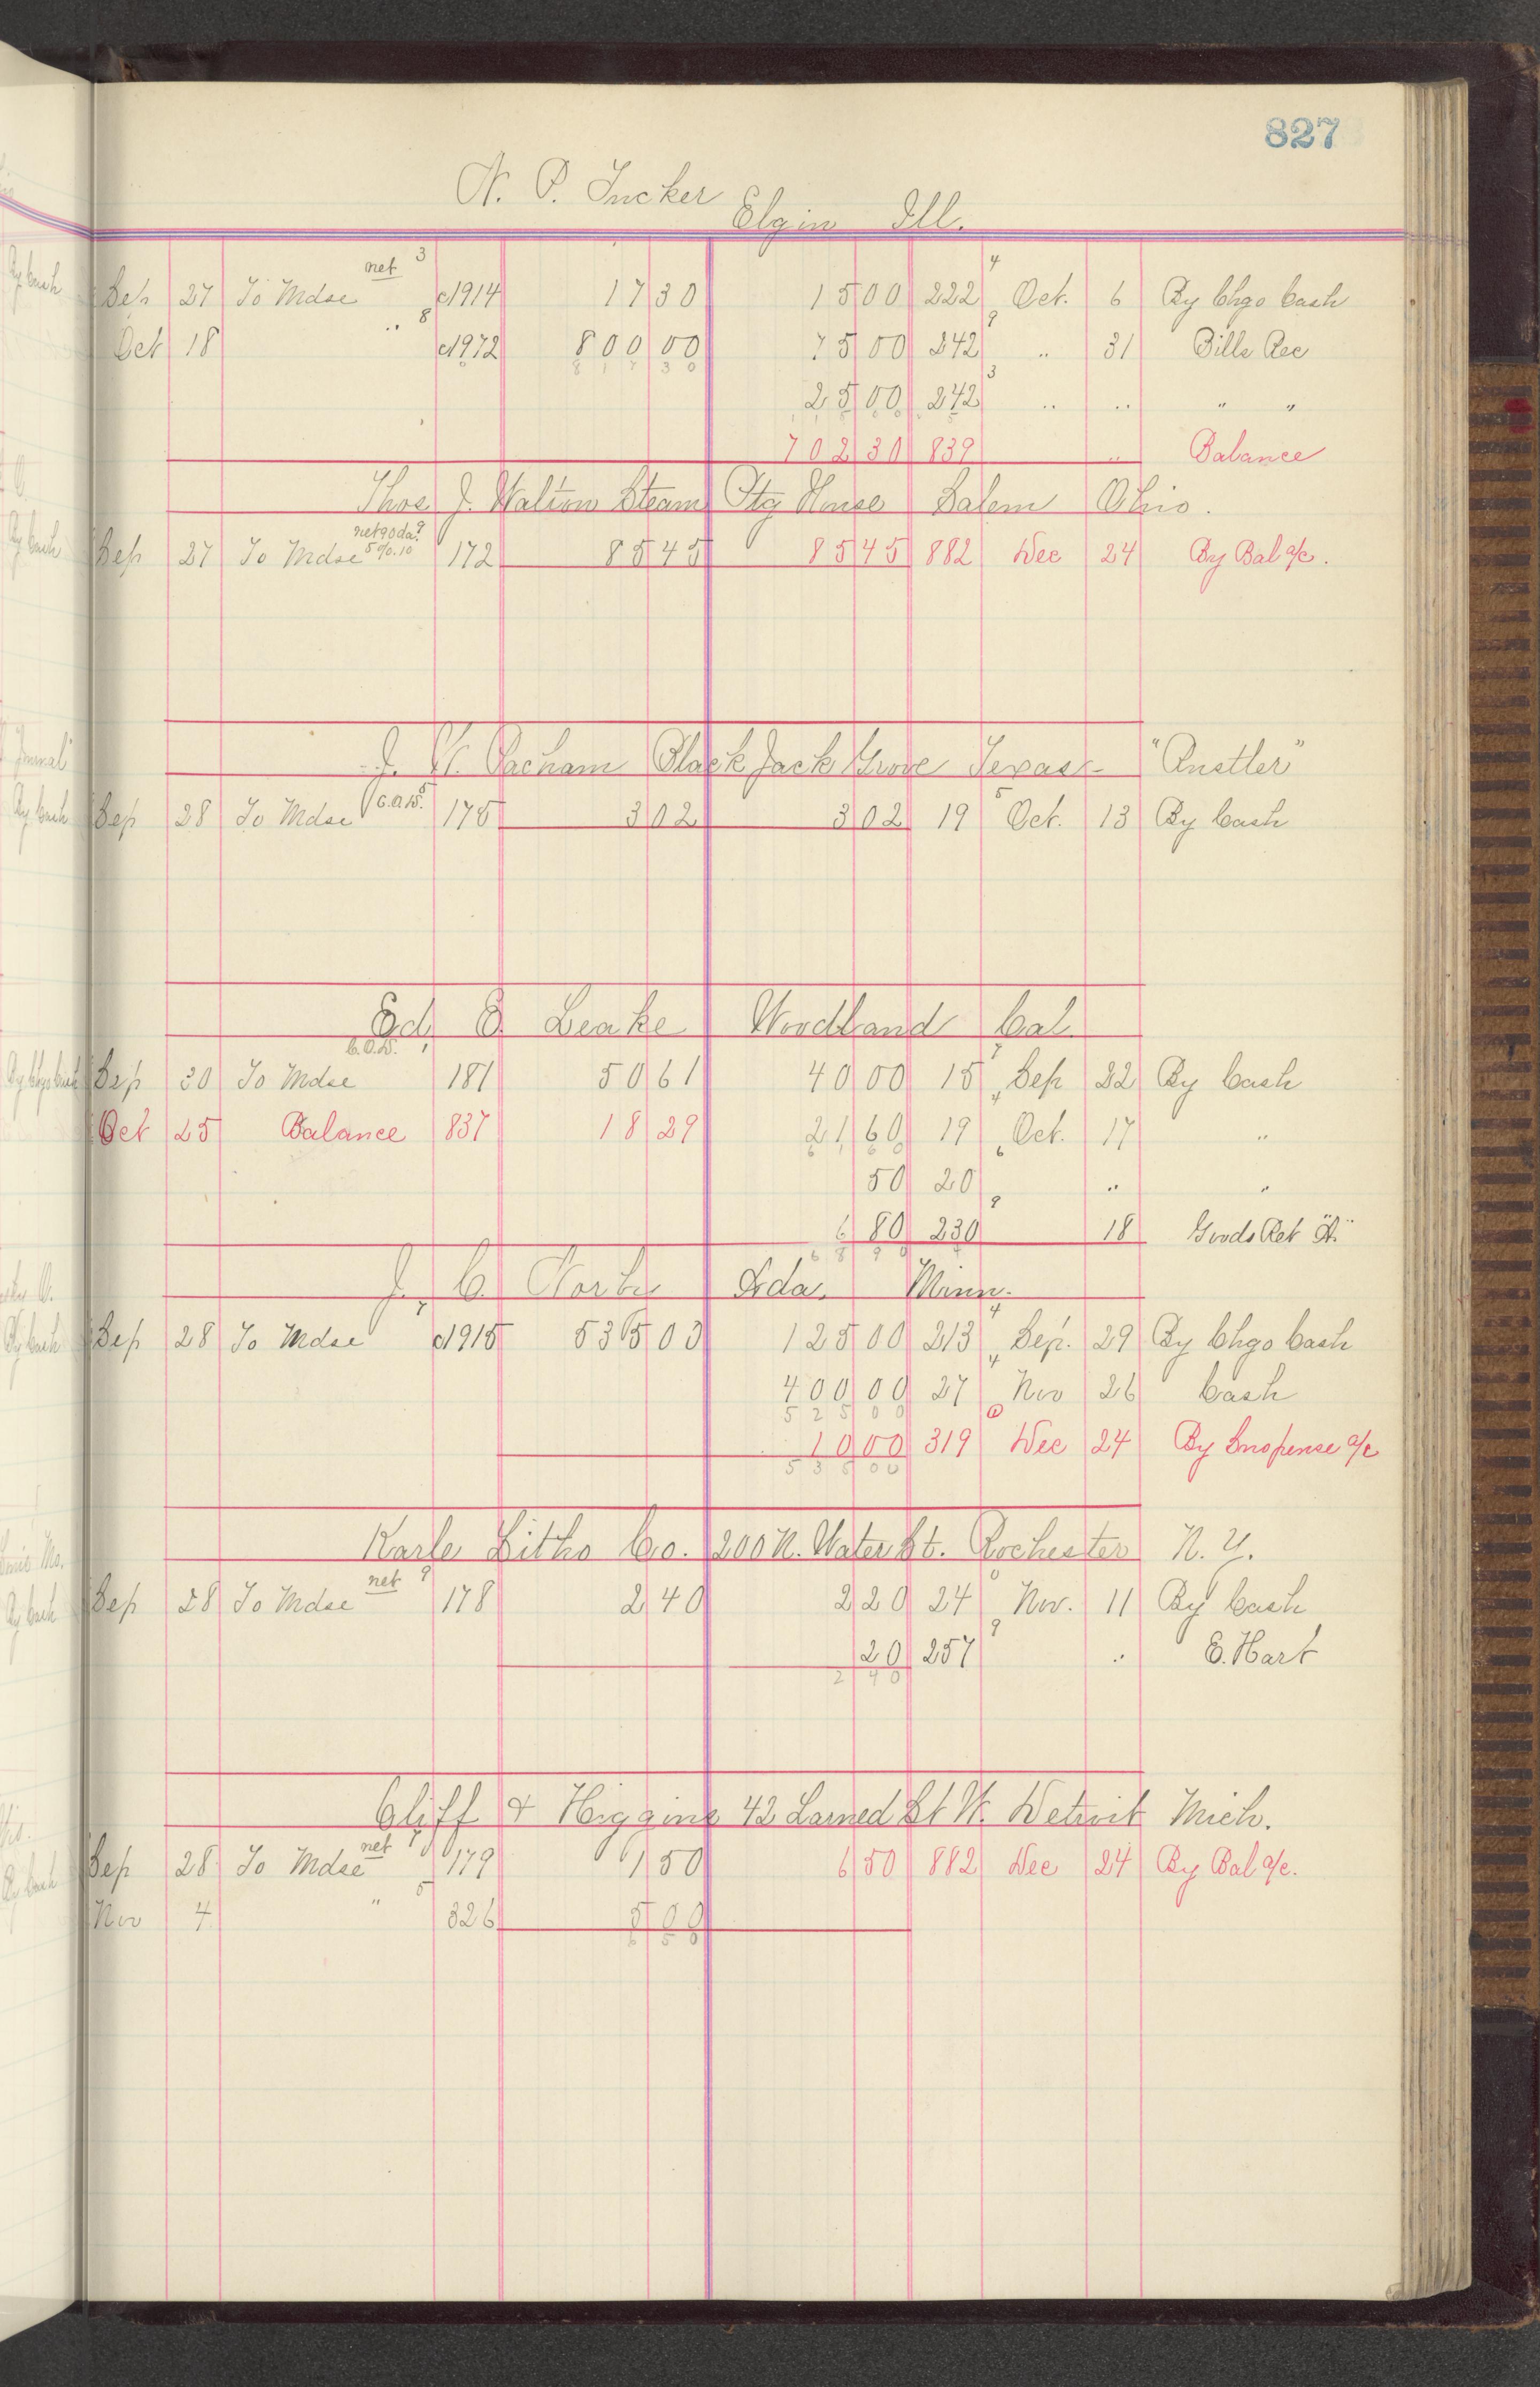 827
N. P. Tucker Elgin Ill.
Sep 27 To Mdse net 3 c1914 17 30 15 00 222 4 Oct. 6 By Chgo Cash
Oct 18 " 8 c1972 800 00 75 00 242 9 " 31 Bills Rec
8 1 7 3 0
25 00 242 3 " " " "
702 30 839 " Balance
Thos J. Walton Steam Ptg House Salem Ohio.
Sep 27 To Mdse net 90 da. 9 5%.10 172 85 45 85 45 882 Dec 24 By Bal a/c.
J. W. Pacham Black Jack Grove Texas "Rustler"
Sep 28 To Mdse C.O.D. 175 3 02 3 02 19 Oct. 13 By Cash
Ed E. Leake Woodland Cal
Sep 30 To Mdse C.O.D. 1 181 50 61 40 00 15 Sep 22 By Cash
Oct 25 Balance 837 18 29 21 60 19 Oct. 17 "
6 1 6 0
50 20 " "
6 80 230 9 18 Goods Ret "A"
6 8 9 0
J. C. Norby Ada. Minn.
Sep 28 To Mdse 7 c1915 535 03 125 00 213 4 Sep. 29 By Chgo Cash
400 00 27 Nov 26 Cash
5 2 5 0 0
10 00 319 Dec 24 By Suspense a/c
5 3 5 0 0
Karle Litho Co. 200 N. Water St. Rochester N. Y.
Sep 28 To Mdse net 9 178 2 40 2 20 24 Nov. 11 By Cash
20 257 9 " E. Hart
2 4 0
Cliff & Higgins 42 Larned St W. Detroit Mich.
Sep 28 To Mdse net 9 179 1 50 6 50 882 Dec 24 By Bal a/c.
Nov 4 " 5 326 5 00
6 5 0